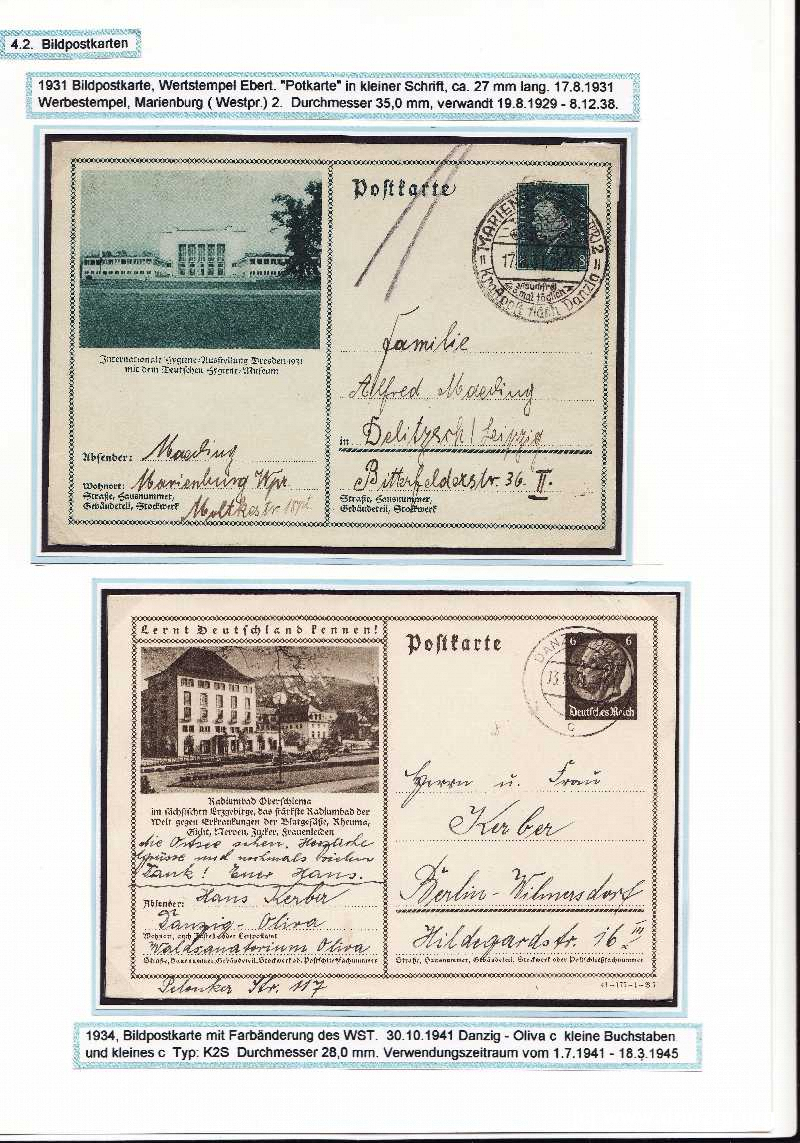 4.2. Bildpostkarten
1931 Bildpostkarte, Wertstempel Ebert. "Potkarte" in kleiner Schrift, ca. 27 mm lang. 17.8.1931
Werbestempel, Marienburg ( Westpr.) 2. Durchmesser 35,0 mm, verwandt 19.8.1929 - 8.12.38.
Postkarte
8
Internationale Hygiene-Ausstellung Dresden 1931
mit dem Deutschen Hygiene-Museum
Familie
Alfred Maeding
in Delitzsch / Leipzig
Bitterfelderstr. 36 II.
Straße, Hausnummer,
Gebäudeteil, Stockwerk
Absender: Maeding
Wohnort: Marienburg Wpr.
Straße, Hausnummer,
Gebäudeteil, Stockwerk
Moltkestr.
Lernt Deutschland kennen!
Postkarte
6 6
Deutsches Reich
DANZIG
c
Radiumbad Oberschlema
im sächsischen Erzgebirge, das stärkste Radiumbad der
Welt gegen Erkrankungen der Blutgefäße, Rheuma,
Gicht, Nerven, Zucker, Frauenleiden
die Ostsee sehen. Herzliche
Grüsse und nochmals vielen
Dank! Euer Hans.
Absender: Hans Kerber
Danzig - Oliva
Waldsanatorium Oliva
Straße, Hausnummer, Gebäudeteil, Stockwerk od. Postschließfachnummer
Pelonker Str. 117
Herrn u. Frau
Kerber
Berlin-Wilmersdorf
Hildegardstr. 16 III
Straße, Hausnummer, Gebäudeteil, Stockwerk oder Postschließfachnummer
1934, Bildpostkarte mit Farbänderung des WST. 30.10.1941 Danzig - Oliva c kleine Buchstaben
und kleines c Typ: K2S Durchmesser 28,0 mm. Verwendungszeitraum vom 1.7.1941 - 18.3.1945